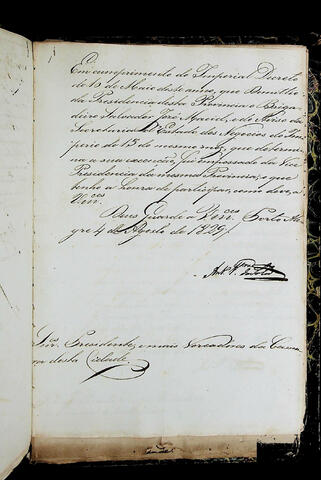 Em cumprimento do Imperial Decreto
de 13 de Maio deste anno, que demitio
da Presidencia desta Provincia o Briga
deiro Salvador José Maciel, e do Aviso da
Secretaria d'Estado dos Negocios do Im
perio de 15 do mesmo mez, que determi
na a sua execução, fui empossado da Vice
Presidencia da mesma Provincia; o que
tenho a honra de participar, como devo, a
V.mces
Deus Guarde a V.mces Porto Ale
gre 4 de Agosto de 1829
Snr. Presidente, e mais Vereadores da Cama
ra desta Cidade.